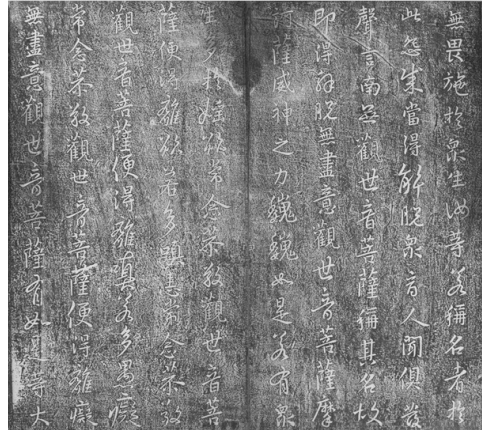 無畏施於眾生汝等若稱名者於
此怨賊當得解脫眾商人聞俱發
聲言南無觀世音菩薩稱其名故
即得解脫無盡意觀世音菩薩摩
訶薩威神之力巍巍如是若有眾
生多於婬欲常念恭敬觀世音菩
薩便得離欲若多瞋恚常念恭敬
觀世音菩薩便得離瞋若多愚癡
常念恭敬觀世音菩薩便得離癡
無盡意觀世音菩薩有如是等大